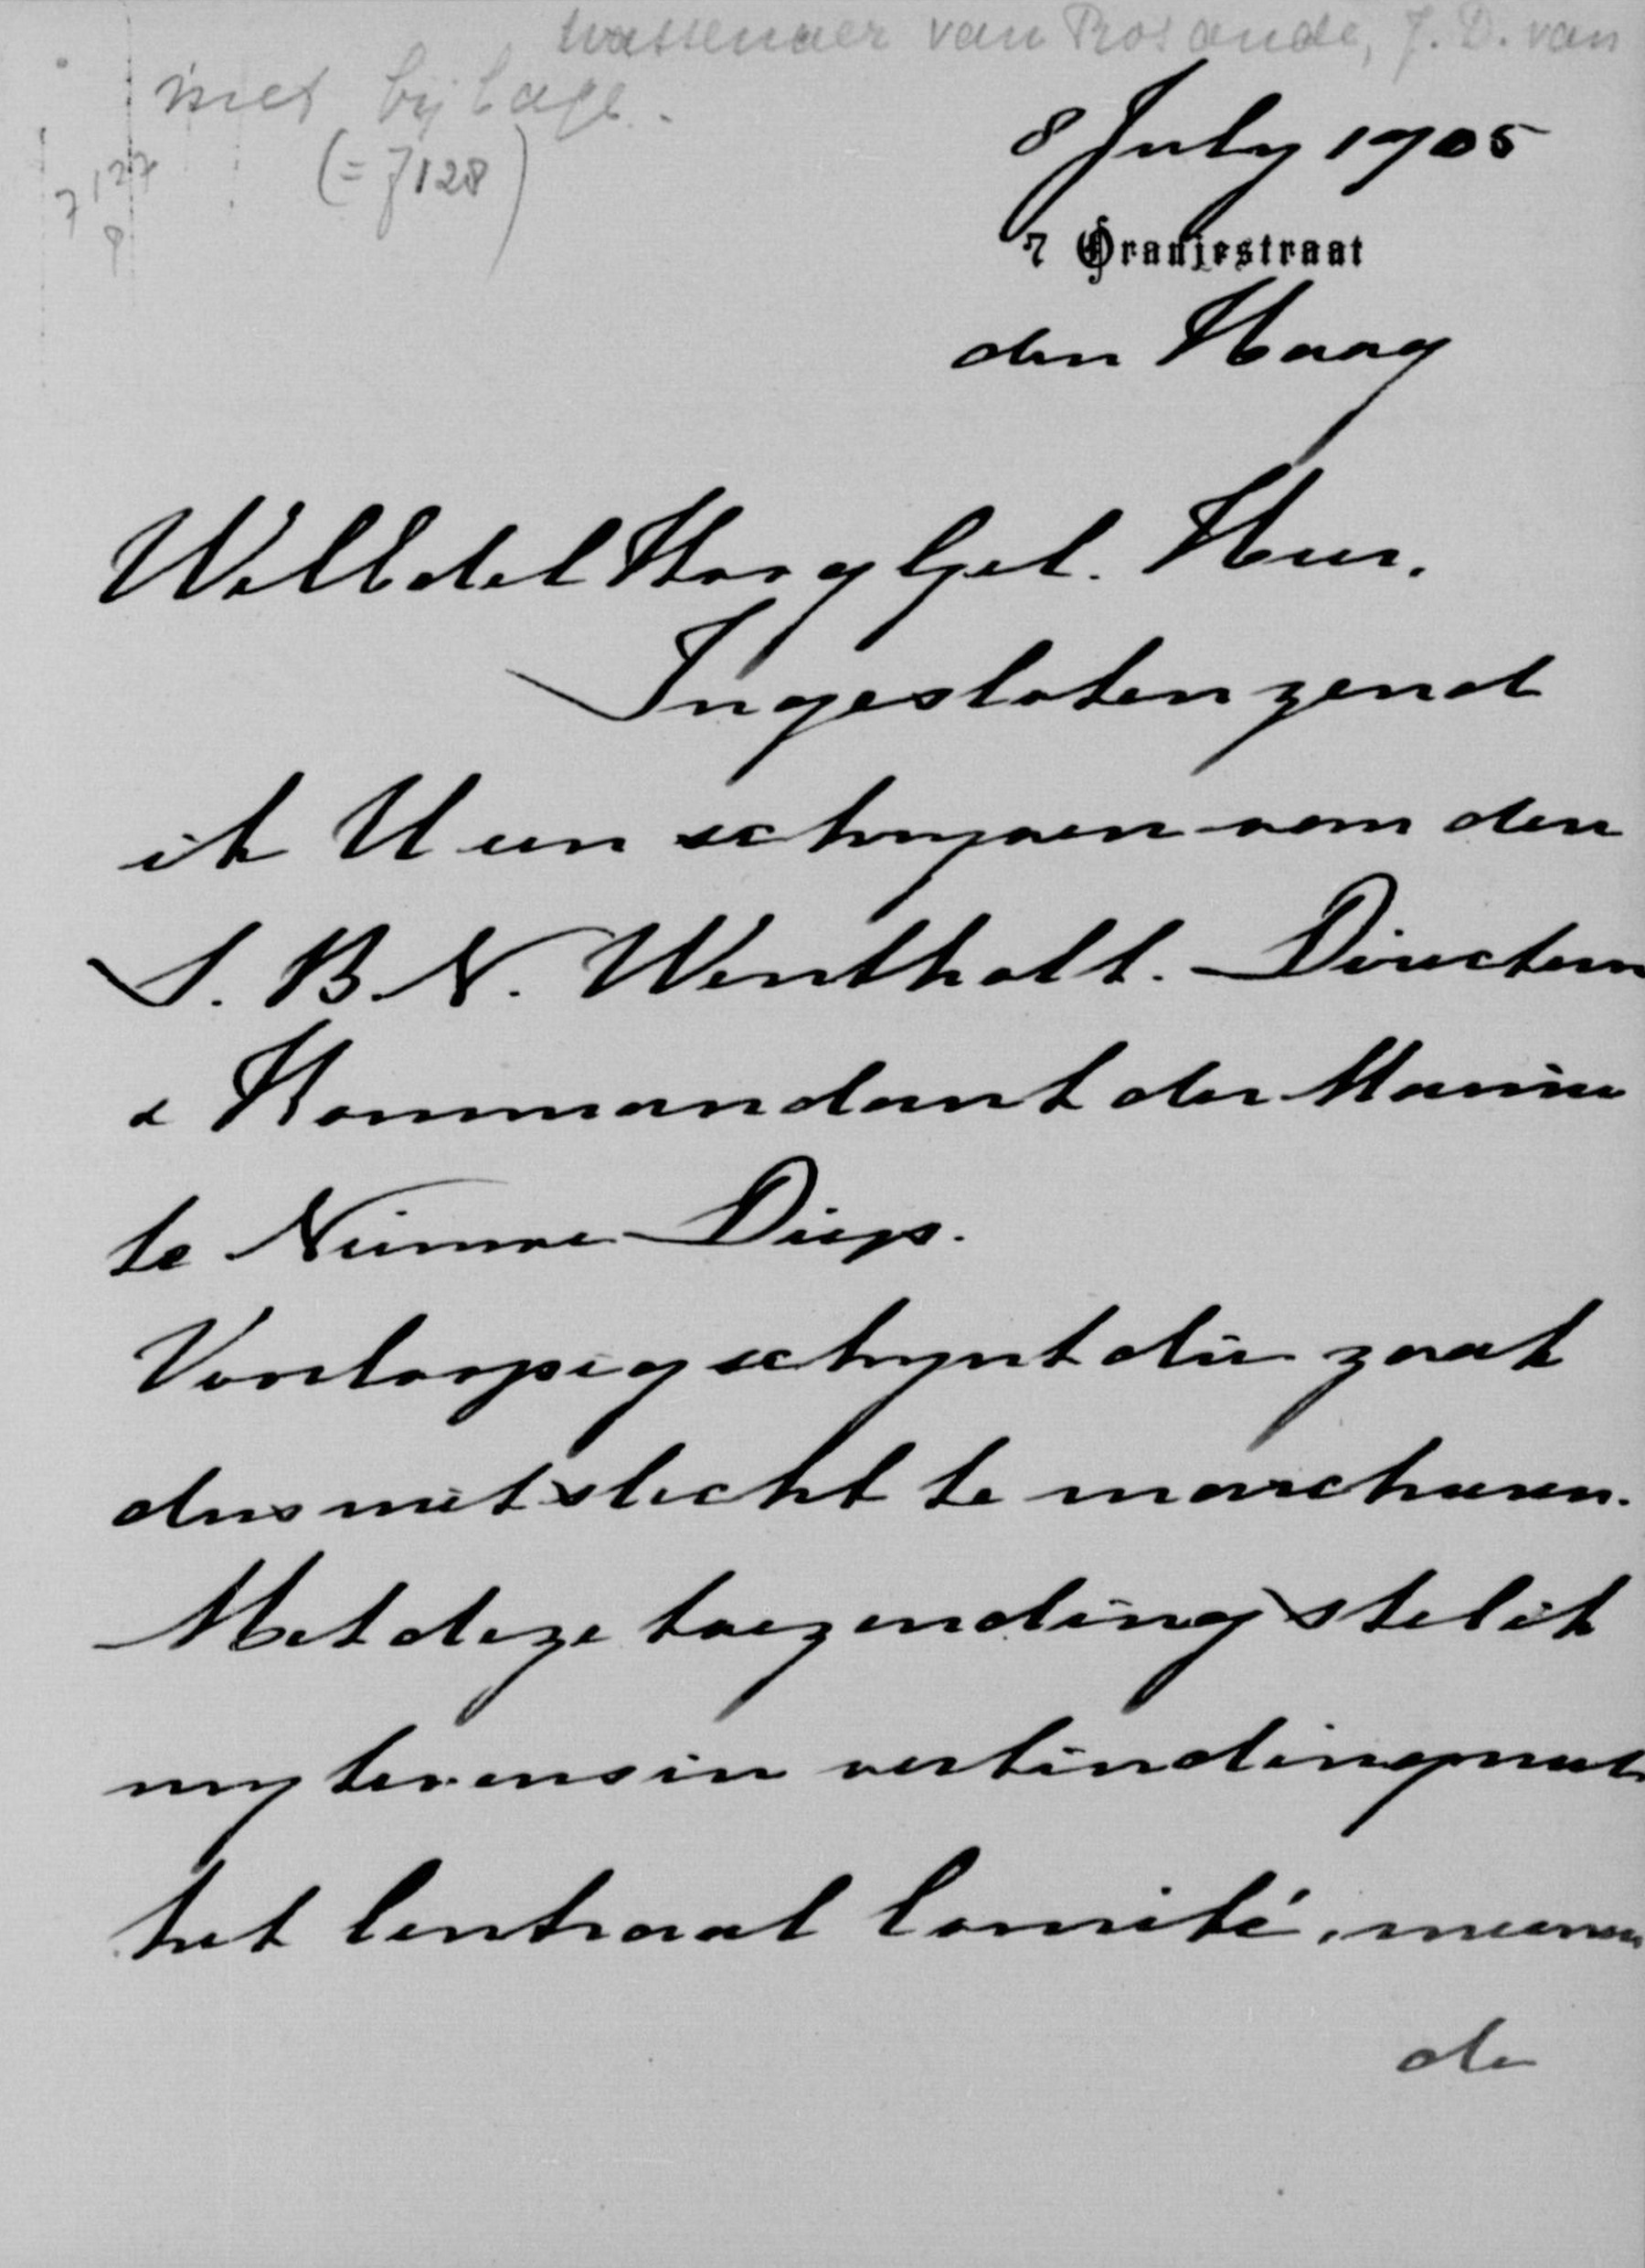 Wassenaer van Rosande, J. D. van
met bijlage.
(= 7128)
7127
8
8 July 1905
7 Oranjestraat
den Haag
WelEdel HooggGel. Heer.
Ingesloten zend
ik U een schryven van den
S. B. N. Wentholt. Directeur
& Kommandant der Marine
te Nieuwe Diep.
Voorloopig schynt die zaak
dus niet slecht te marcheeren.
Met deze toezending stel ik
my tevens in verbinding met
het Centraal Comité,
de